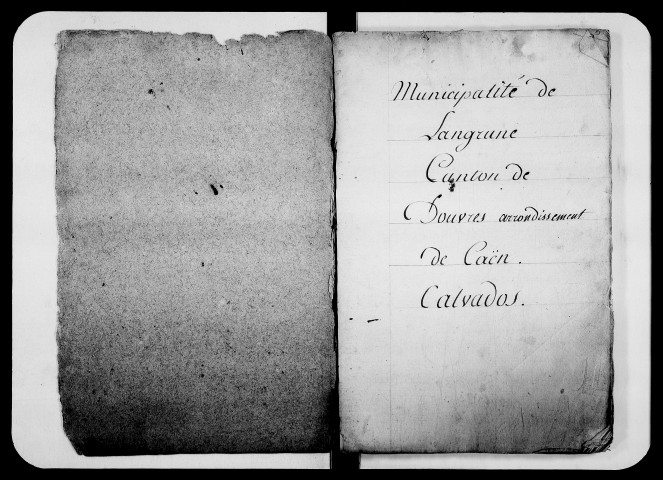 Municipalité de
Langrune
Canton de
Douvres arrondissement
de Caën.
Calvados.